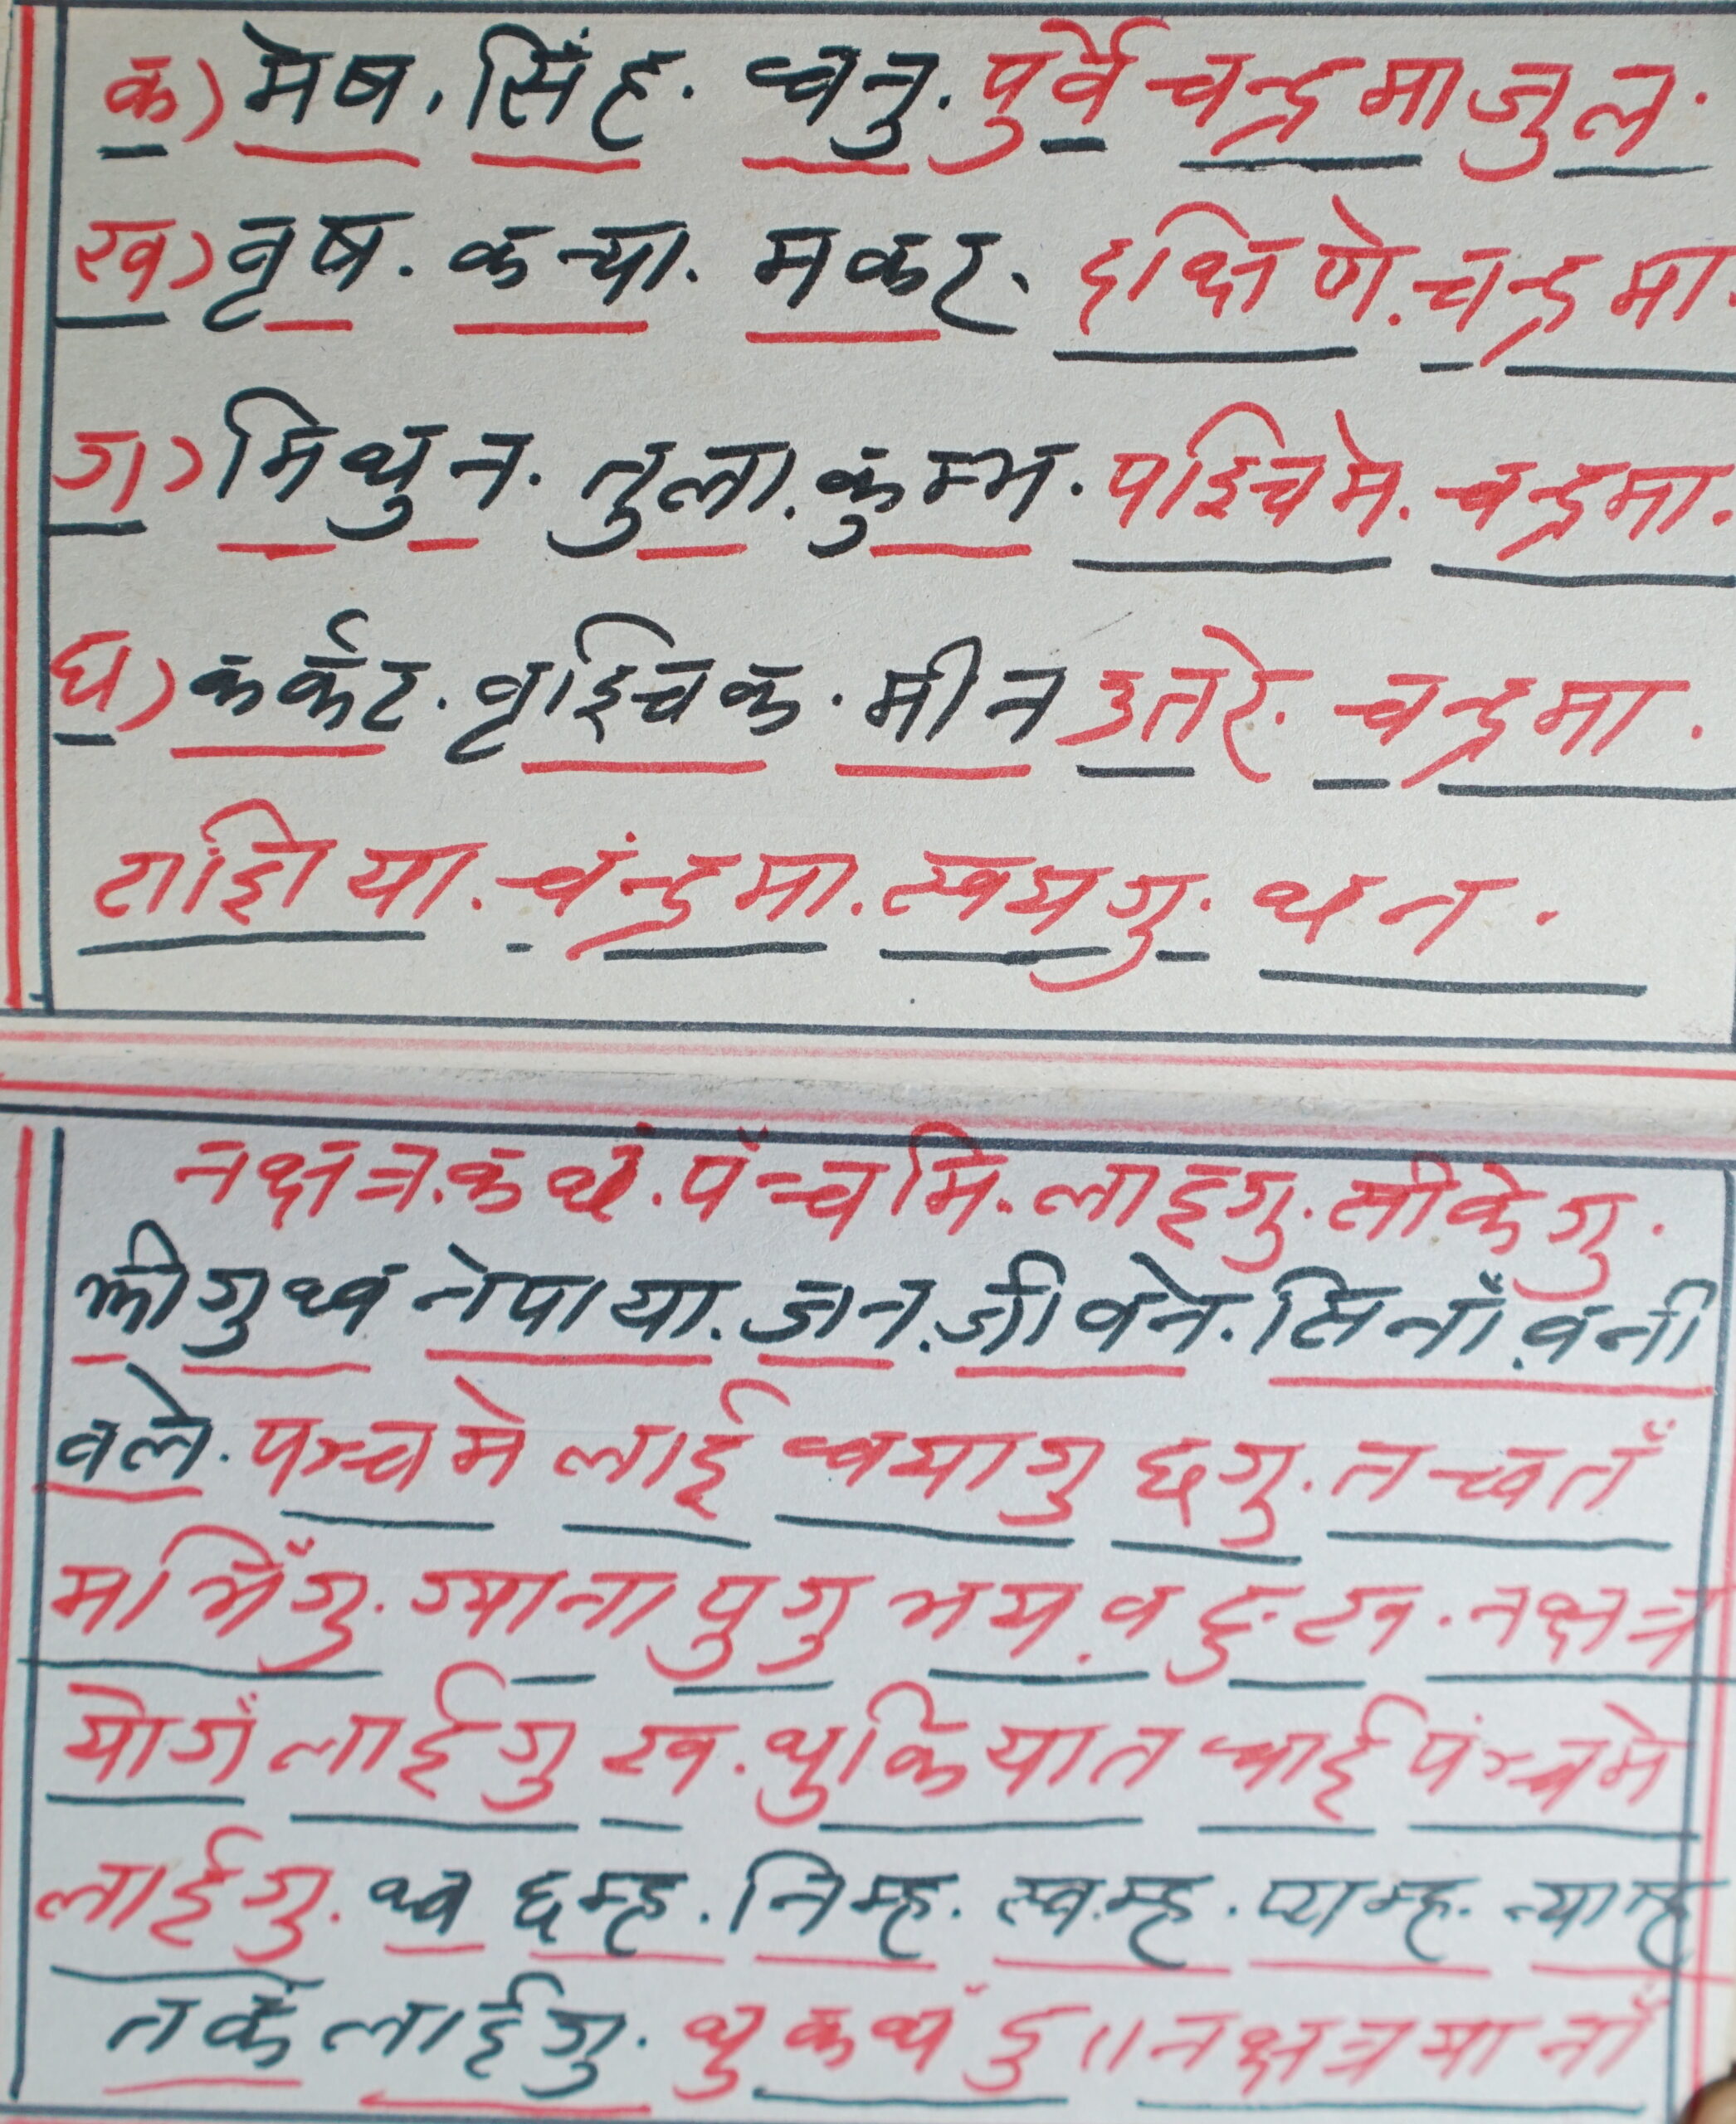 क) मेष. सिंह. धनु. पुर्वे चन्द्रमा जुल.
ख) वृष. कन्या. मकर. दक्षिणे. चन्द्रमा.
ग) मिथुन. तुला. कुम्भ. पश्चिमे. चन्द्रमा.
घ) कर्कट. वृश्चिक. मीन उतरे. चन्द्रमा.
राशि या. चंन्द्रमा. स्वयगु. थन.
नक्षत्र. कथं. पँन्चमि. लाइगु. सीकेगु.
झीगु थ्व नेपाया. जन. जीवने. सिनाँ. वनी
वले. पञ्चमे लाई धयागु छगु. तच्वतँ
मभिँगु. ग्याना पुगु भय. व दुःख. नक्षत्र
योगँ लाईगु ख. थुकियात धाई पंञ्चमे
लाईगु. थ्व छम्ह. निम्ह. स्व.म्ह. प्यम्ह. न्याम्ह
तकं लाईगु. थुकथँ दु ॥ नक्षत्रया नाँ